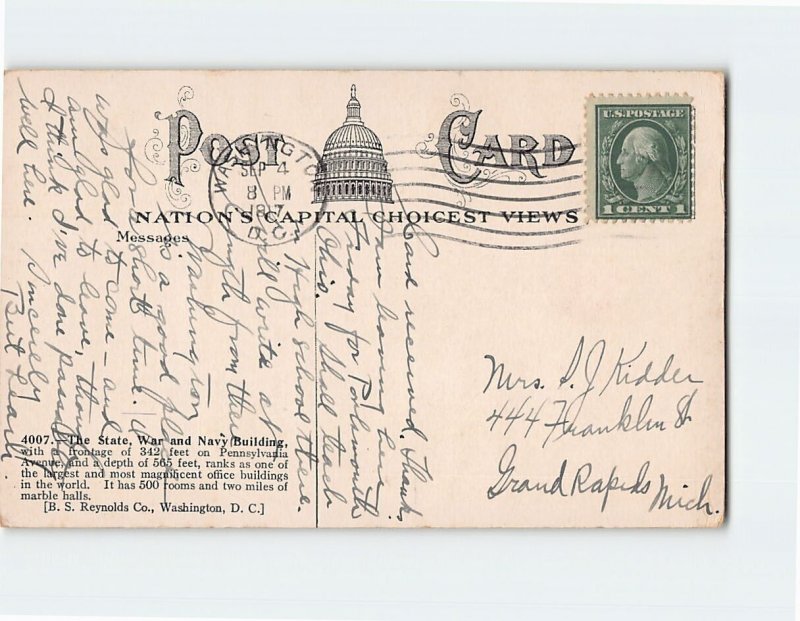 POST CARD
U.S. POSTAGE
1 CENT 1
WASHINGTON
SEP 4
8 PM
1917
D.C.
NATION'S CAPITAL CHOICEST VIEWS
Messages
Card received. Thanks
am leaving here
Friday for Portsmouth
Ohio. I shall teach
in High school there.
will write at
length from there
Washington
is a good place
for short time. I
was glad to come - and
am glad to leave, though
I think I've done passably
well here. Sincerely
Mrs. S. J Kidder
444 Franklin St
Grand Rapids Mich.
4007.—The State, War and Navy Building,
with a frontage of 342 feet on Pennsylvania
Avenue, and a depth of 565 feet, ranks as one of
the largest and most magnificent office buildings
in the world. It has 500 rooms and two miles of
marble halls.
[B. S. Reynolds Co., Washington, D. C.]